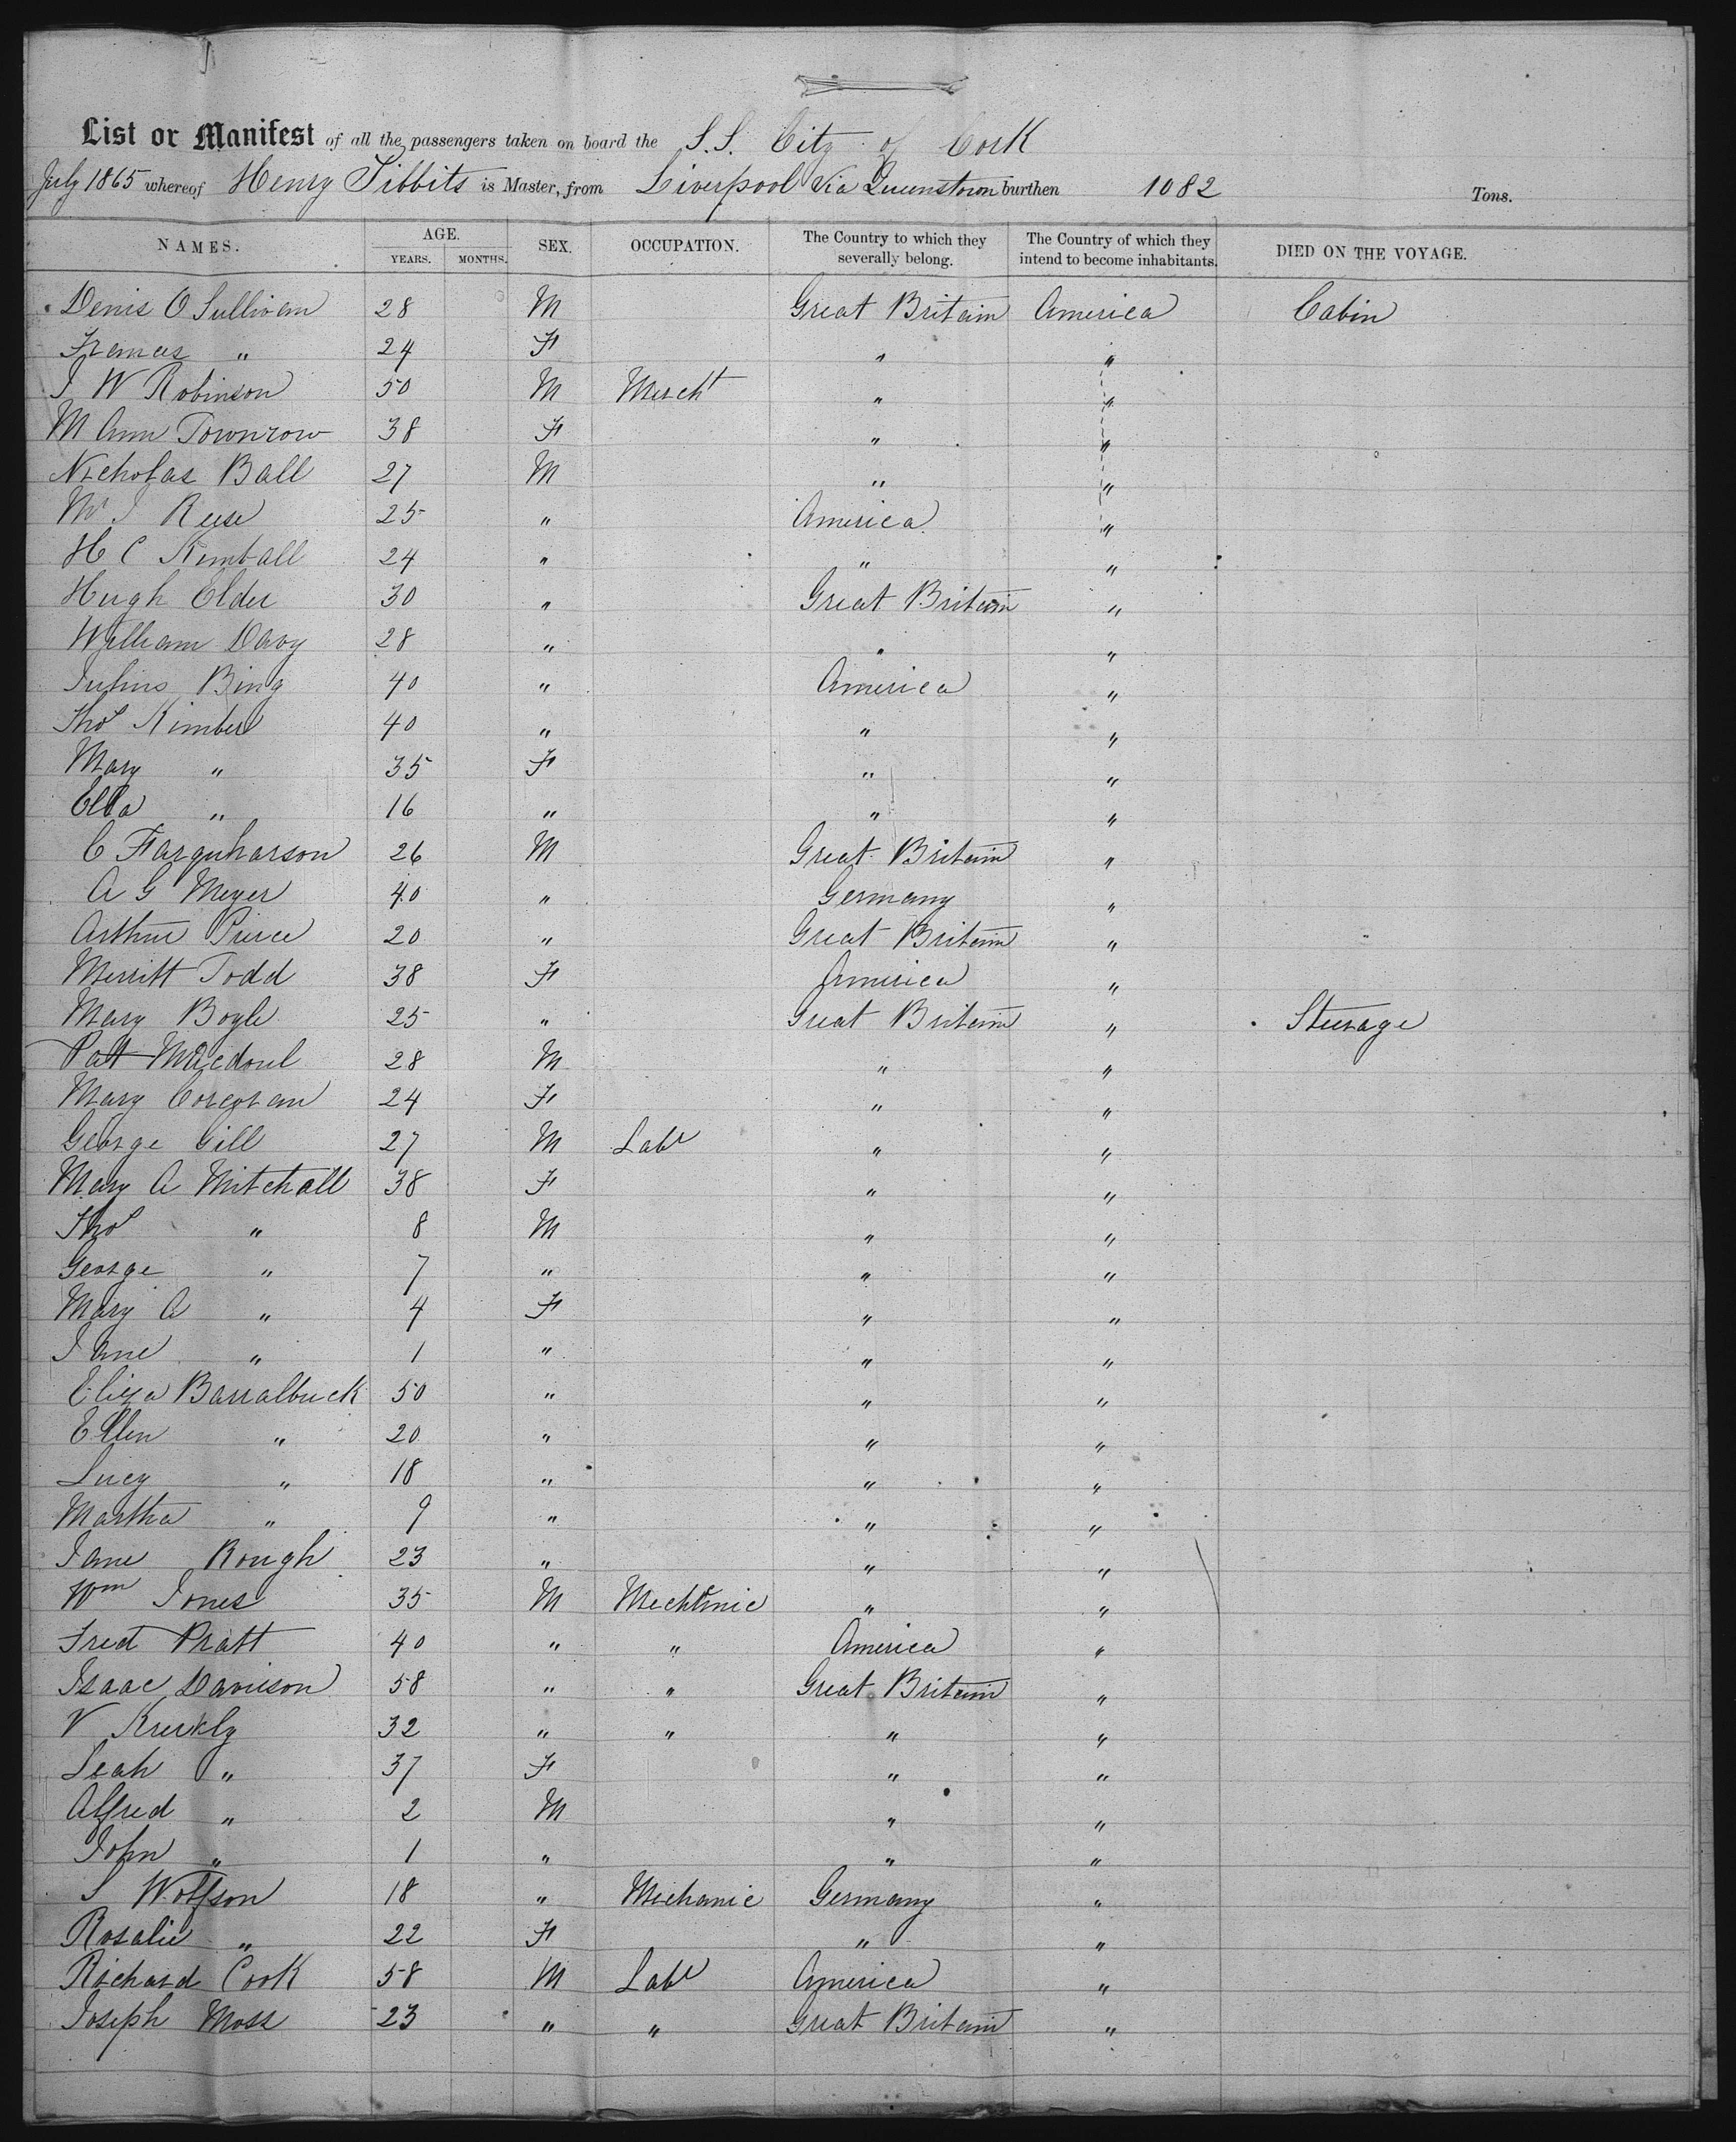 List or Manifest of all the passengers taken on board the S.S. City of Cork
July 1865 whereof Henry Tibbits is Master, from Liverpool Via Queenstown burthen 1082 Tons.
NAMES. AGE. YEARS. MONTHS. SEX. OCCUPATION. The Country to which they severally belong. The Country of which they intend to become inhabitants. DIED ON THE VOYAGE.
Denis O Sullivan 28 M Great Britain America Cabin
Frances " 24 F " "
J W Robinson 50 M Mercht " "
M Ann Townrow 38 F " "
Nicholas Ball 27 M " "
Mr J Reese 25 " America "
H C Kimball 24 " " "
Hugh Elder 30 " Great Britain "
William Davy 28 " " "
Julius Bing 40 " America "
Thos Kimber 40 " " "
Mary " 35 F " "
Ella " 16 " " "
C Farquharson 26 M Great Britain "
A G Meyer 40 " Germany "
Arthur Pierce 20 " Great Britain "
Merritt Todd 38 F America "
Mary Boyle 25 " Great Britain " Steerage
Pat 28 M " "
Mary Corcoran 24 F " "
George Gill 27 M Labr " "
Mary A Mitchall 38 F " "
Thos " 8 M " "
George " 7 " " "
Mary A " 4 F " "
Jane " 1 " " "
Eliza Barralbuck 50 " " "
Ellen " 20 " " "
Lucy " 18 " " "
Martha " 9 " " "
Jane Rough 23 " " "
Wm Jones 35 M Mechanic " "
Fred Pratt 40 " " America "
Isaac Davison 58 " " Great Britain "
V 32 " " " "
Leah " 37 F " "
Alfred " 2 M " "
John " 1 " " "
S Wolfson 18 " Mechanic Germany "
Rosalie " 22 F " "
Richard Cook 58 M Labr America "
Joseph Moss 23 " " Great Britain "